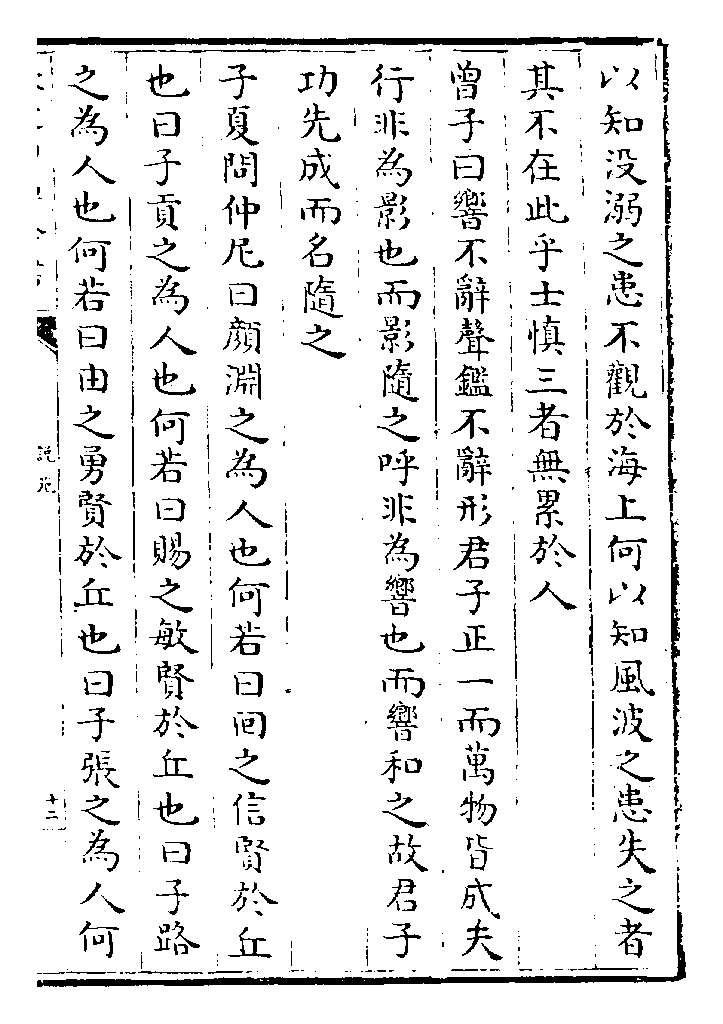 以知没溺之患不觀於海上何以知風波之患失之者
其不在此乎士慎三者無累於人
曾子曰響不辭聲鑑不辭形君子正一而萬物皆成夫
行非為影也而影隨之呼非為響也而響和之故君子
功先成而名隨之
子夏問仲尼曰顔淵之為人也何若曰回之信賢於丘
也曰子貢之為人也何若曰賜之敏賢於丘也曰子路
之為人也何若曰由之勇賢於丘也曰子張之為人何
說苑
十三